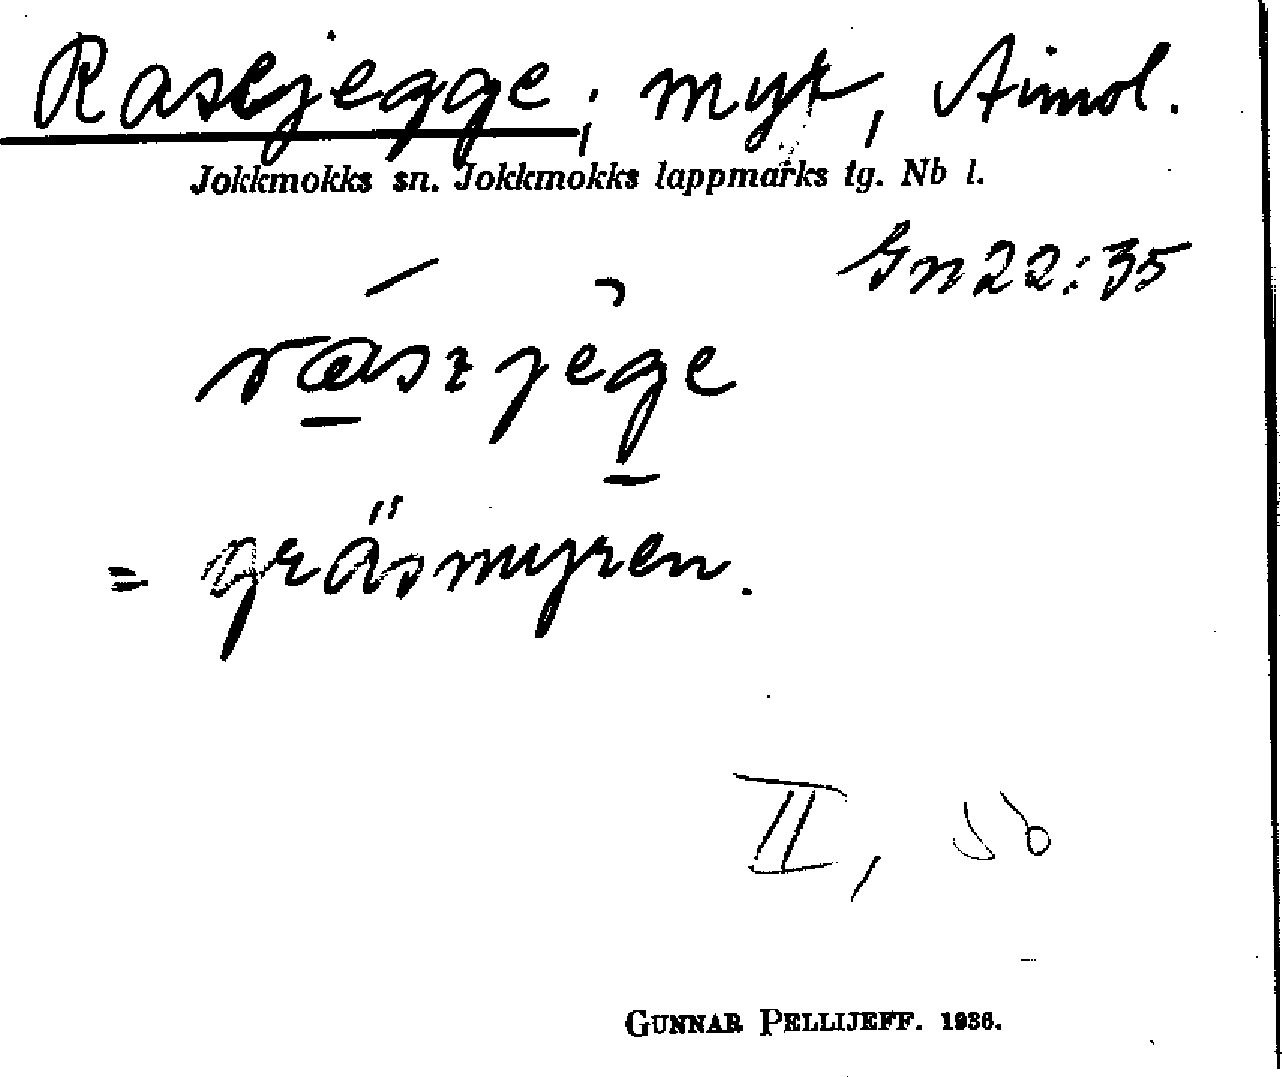 Rasejegge; myr, Aimol.
Jokkmokks sn. Jokkmokks lappmarks tg. Nb l.
Gn22:35
= gräsmyren.
II,
GUNNAR PELLIJEFF. 1936.